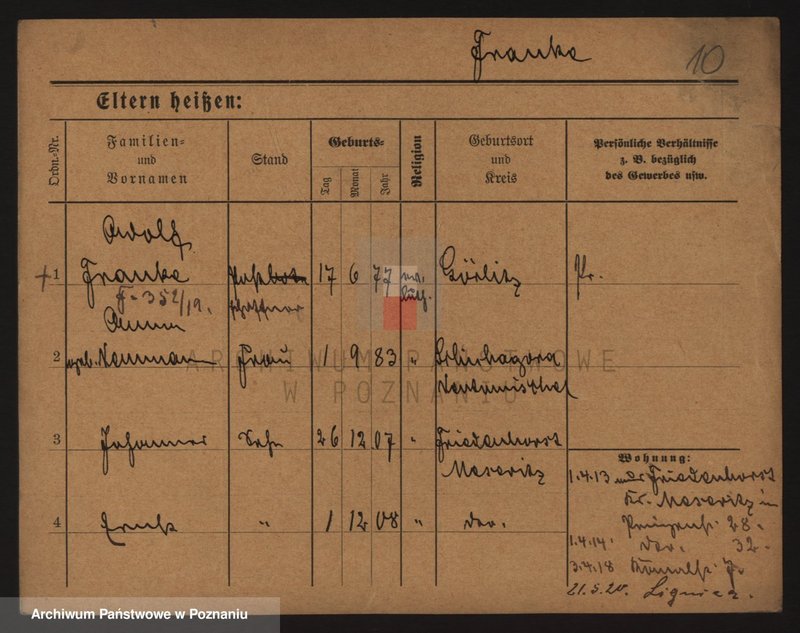 Franke
10
Eltern heißen:
Ordn.-Nr.
Familien-
und
Vornamen
Stand
Geburts-
Tag
Monat
Jahr
Religion
Geburtsort
und
Kreis
Persönliche Verhältnisse
z. B. bezüglich
des Gewerbes usw.
Adolf
+1 Franke Postbote 17 6 77 ev. Görlitz Pr.
F. 352/19. schaffner luth.
Anna
2 geb. Neumann Frau 1 9 83 "
Neutomischel
3 Johannes Sohn 26 12 07 " Friedenhorst
Meseritz
4 Ernst " 1 12 08 " do.
Wohnung:
1.4.13 Friedenhorst
Kr. Meseritz in
Prinzenst. 28.
1.4.14. do. 32.
3.4.18
21.5.20. Lignica
ARCHIWUM PAŃSTWOWE
W POZNANIU
Archiwum Państwowe w Poznaniu